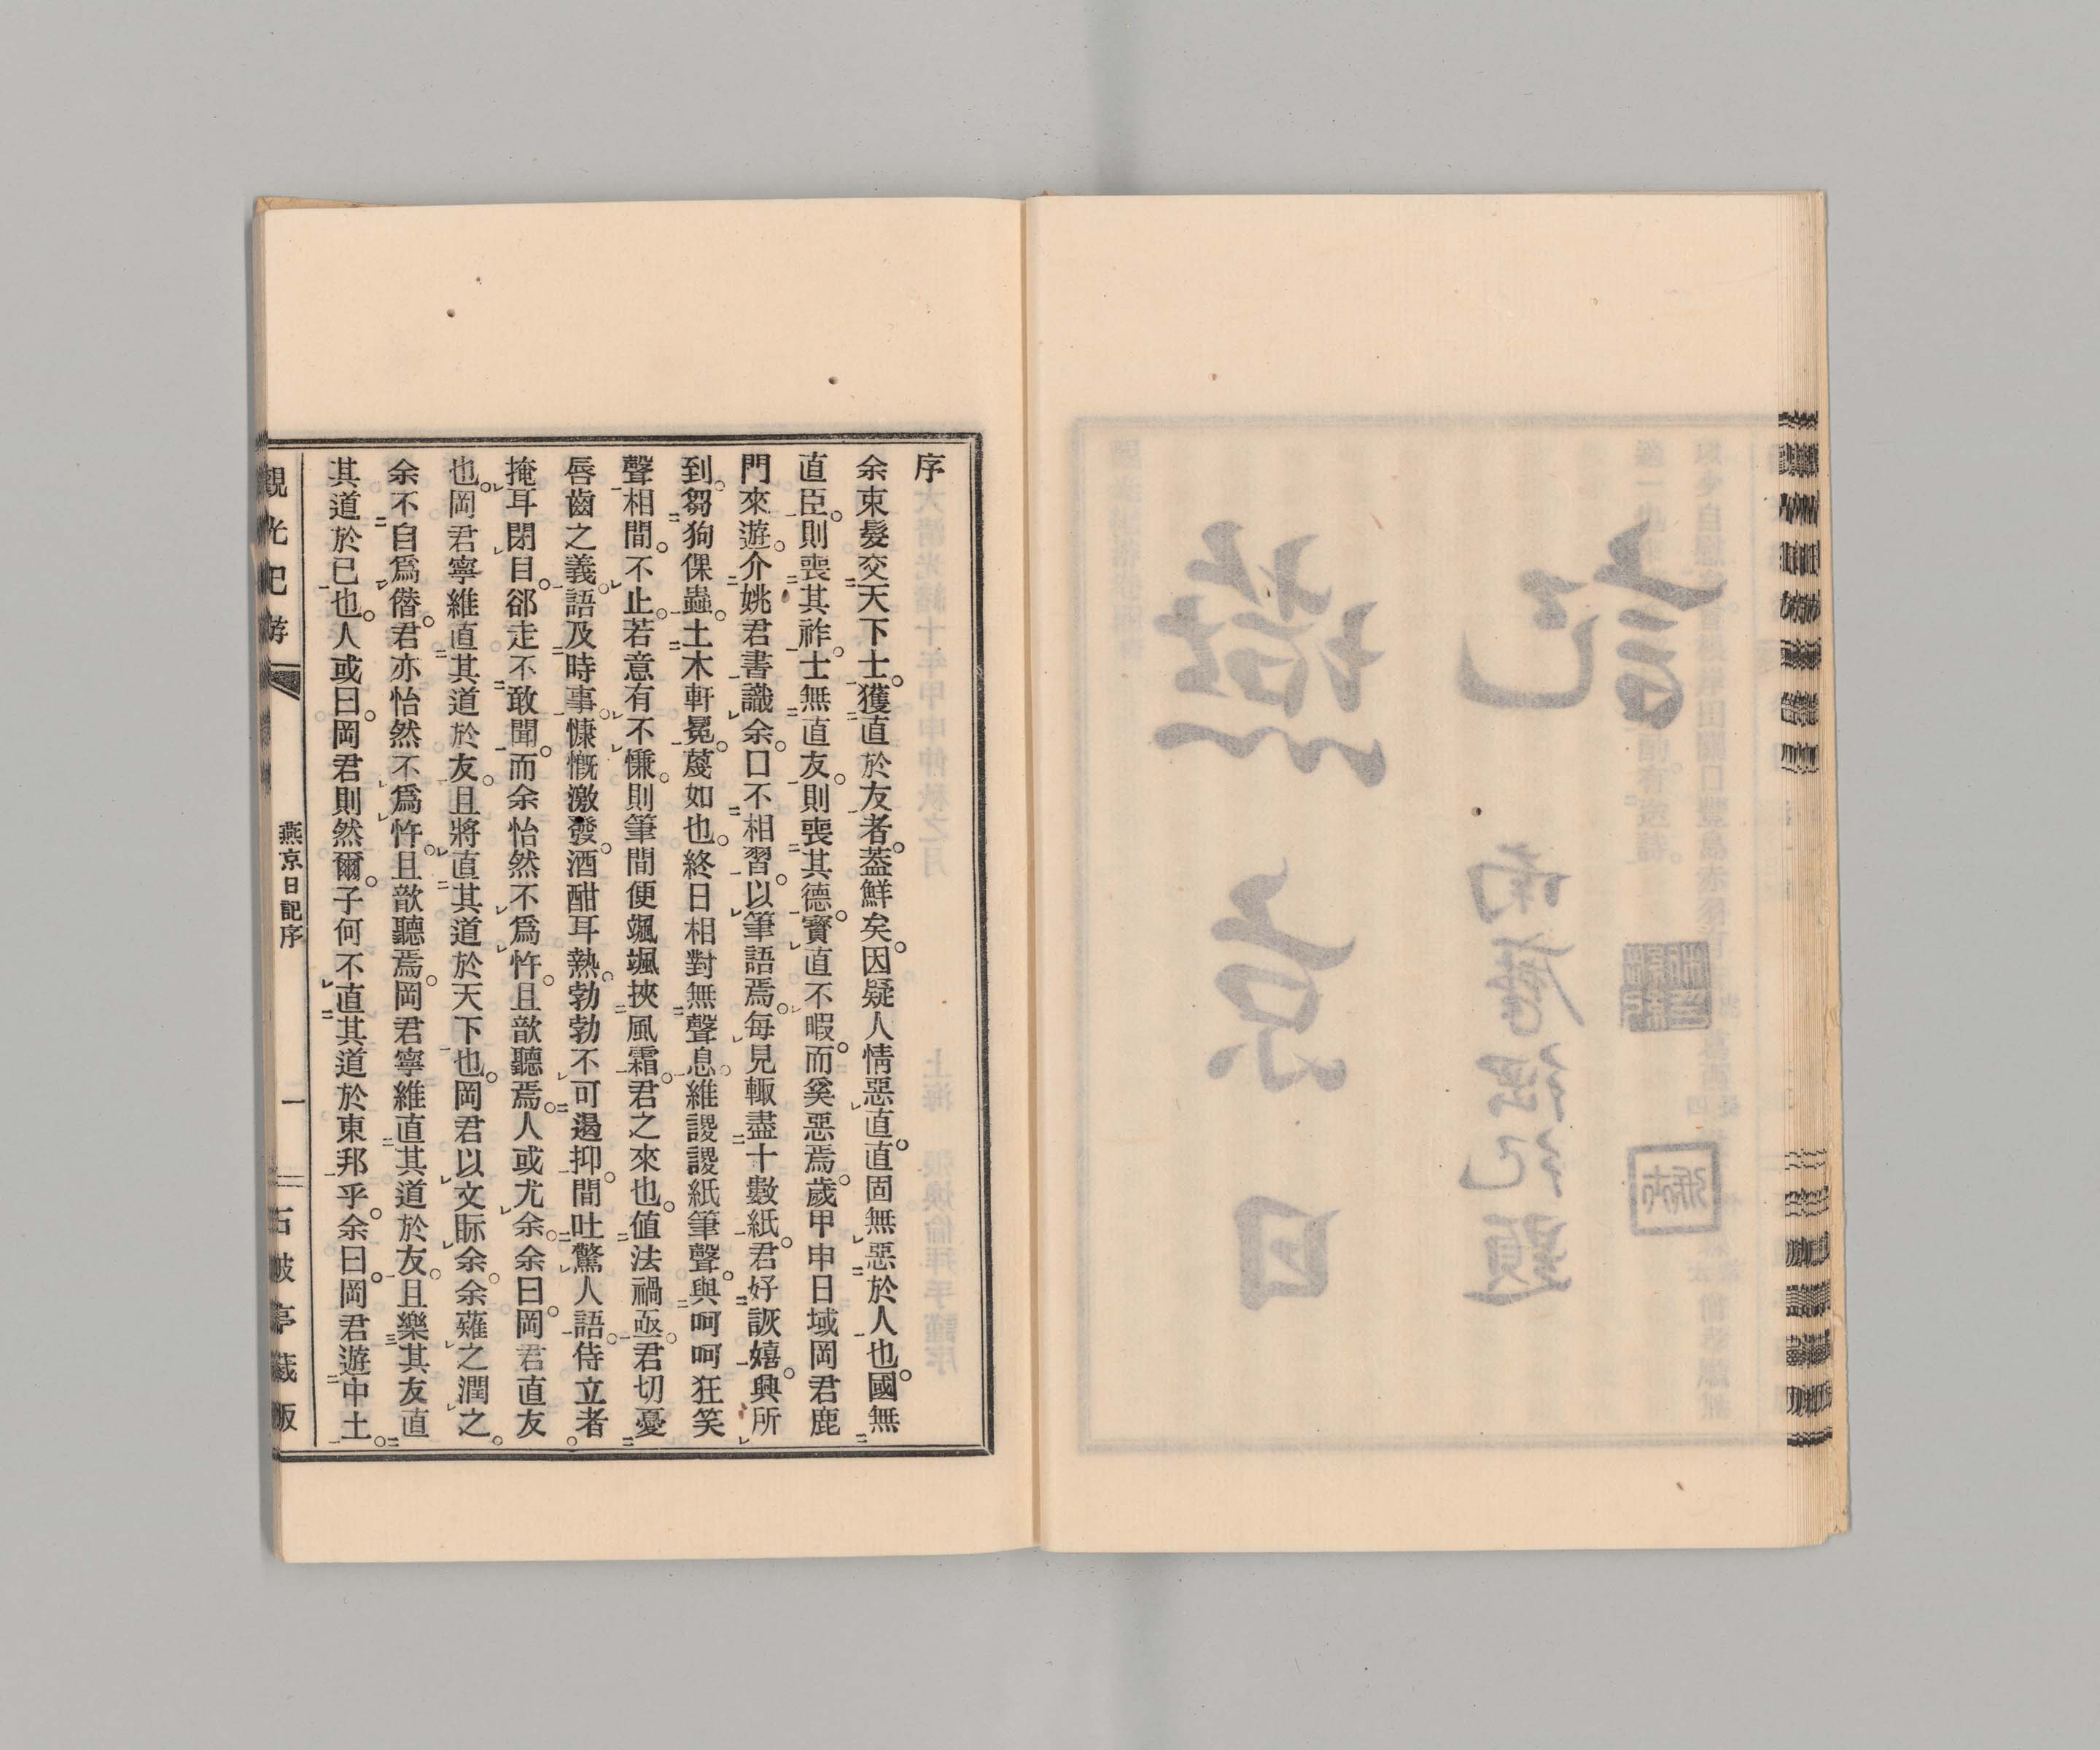 序
余束髮交天下士。獲直於友者。蓋鮮矣。因疑人情惡直。直固無惡於人也。國無
直臣。則喪其祚。士無直友。則喪其德。寶直不暇。而奚惡焉。歲甲申日域岡君鹿
門來遊。介姚君書識余。口不相習。以筆語焉。每見輙盡十數紙。君好詼嬉。興所
到。芻狗倮蟲。土木軒冕。蔑如也。終日相對無聲息。維謖謖紙筆聲。與呵呵狂笑
聲相間。不止。若意有不慊。則筆間便颯颯挾風霜。君之來也。值法禍亟。君切憂
唇齒之義。語及時事。慷慨激發。酒酣耳熱。勃勃不可遏抑。間吐驚人語。侍立者。
掩耳閉目。郤走不敢聞。而余怡然不爲忤。且歆聽焉。人或尤余。余曰。岡君直友
也。岡君寧維直其道於友。且將直其道於天下也。岡君以文眎余。余薙之潤之。
余不自爲僭。君亦怡然不爲忤。且歆聽焉。岡君寧維直其道於友。且樂其友直
其道於已也。人或曰。岡君則然爾。子何不直其道於東邦乎。余曰。岡君遊中土。
觀光記游
燕京日記序
一
石鼓亭藏版
燕京日
記
南薩強紀題